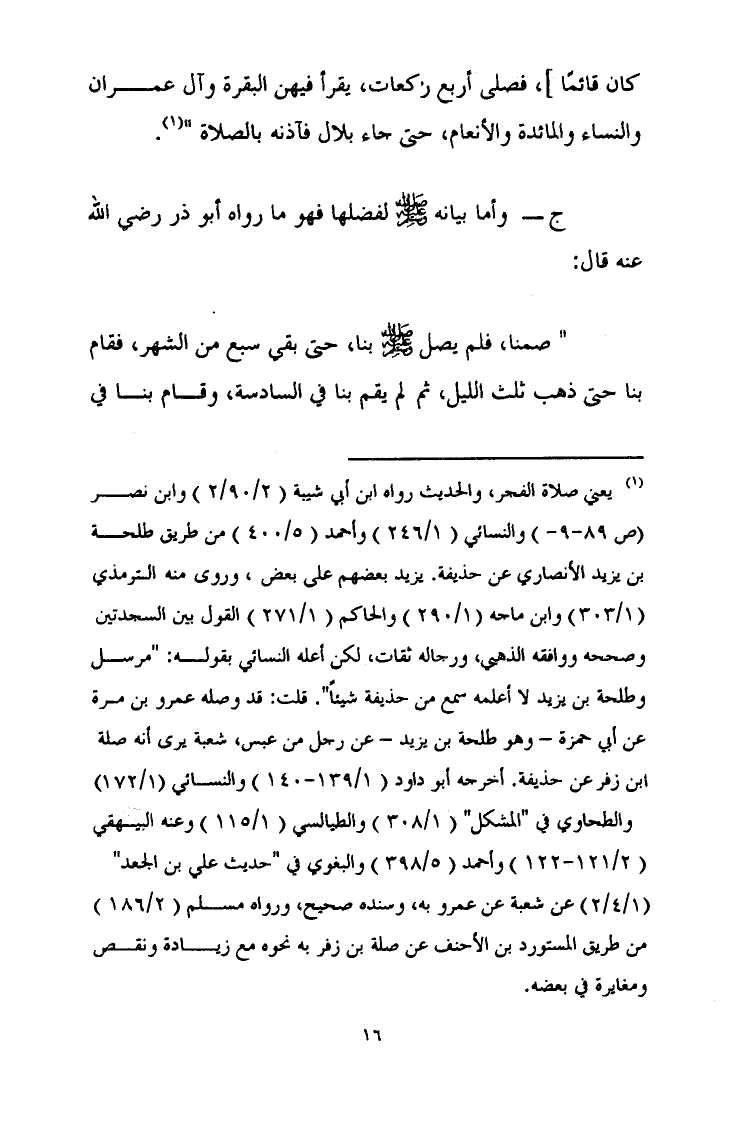 كان قائمًا ]، فصلى أربع ركعات، يقرأ فيهن البقرة وآل عمـــران
والنساء والمائدة والأنعام، حتى جاء بلال فآذنه بالصلاة "(١).
ج ــ وأما بيانه ﷺ لفضلها فهو ما رواه أبو ذر رضي الله
عنه قال:
" صمنا، فلم يصل ﷺ بنا، حتى بقي سبع من الشهر، فقام
بنا حتى ذهب ثلث الليل، ثم لم يقم بنا في السادسة، وقـام بنـا في
(١) يعني صلاة الفجر، والحديث رواه ابن أبي شيبة ( ٢/٩٠/٢ ) وابن نصـــر
(ص ٨٩-٩- ) والنسائي ( ٢٤٦/١ ) وأحمد ( ٤٠٠/٥ ) من طريق طلحـــة
بن يزيد الأنصاري عن حذيفة. يزيد بعضهم على بعض ، وروى منه الترمذي
(٣٠٣/١) وابن ماجه (٢٩٠/١ ) والحاكم ( ٢٧١/١ ) القول بين السجدتين
وصححه ووافقه الذهبي، ورجاله ثقات، لكن أعله النسائي بقولـــه: "مرسل
وطلحة بن يزيد لا أعلمه سمع من حذيفة شيئاً". قلت: قد وصله عمرو بن مرة
عن أبي حمزة – وهو طلحة بن يزيد – عن رجل من عبس، شعبة يرى أنه صلة
ابن زفر عن حذيفة. أخرجه أبو داود ( ١٣٩/١-١٤٠ ) والنسـائي (١٧٢/١)
والطحاوي في "المشكل" ( ٣٠٨/١ ) والطيالسي ( ١١٥/١ ) وعنه البيهقي
( ١٢١/٢-١٢٢ ) وأحمد ( ٣٩٨/٥ ) والبغوي في "حديث علي بن الجعد"
(٢/٤/١) عن شعبة عن عمرو به، وسنده صحيح، ورواه مســلم ( ١٨٦/٢ )
من طريق المستورد بن الأحنف عن صلة بن زفر به نحوه مع زيـــادة ونقــص
ومغايرة في بعضه.
١٦